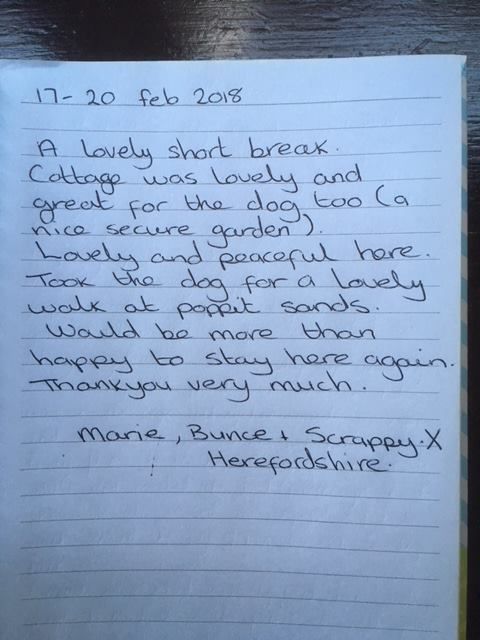 17-20 feb 2018
A lovely short break.
Cottage was lovely and
great for the dog too (a
nice secure garden).
Lovely and peaceful here.
Took the dog for a lovely
walk at poppit sands.
Would be more than
happy to stay here again.
Thankyou very much.
Marie, Bunce + Scrappy.X
Herefordshire.